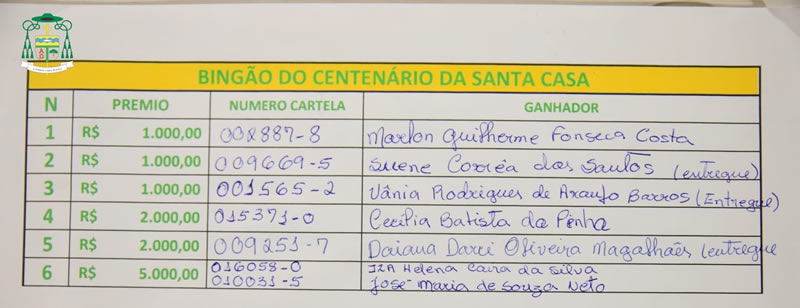 BINGÃO DO CENTENÁRIO DA SANTA CASA
N PREMIO NUMERO CARTELA GANHADOR
1 R$ 1.000,00 002887-8 Marlon Guilherme Fonseca Costa
2 R$ 1.000,00 009669-5 Suene Corrêa dos Santos (entregue)
3 R$ 1.000,00 001565-2 Vânia Rodrigues de Araujo Barros (Entregue)
4 R$ 2.000,00 015371-0 Cecilia Batista da Penha
5 R$ 2.000,00 009251-7 Daiana Darci Oliveira Magalhães (entregue
6 R$ 5.000,00 016058-0 Helena da Silva
010031-5 José Maria de Souza Neto